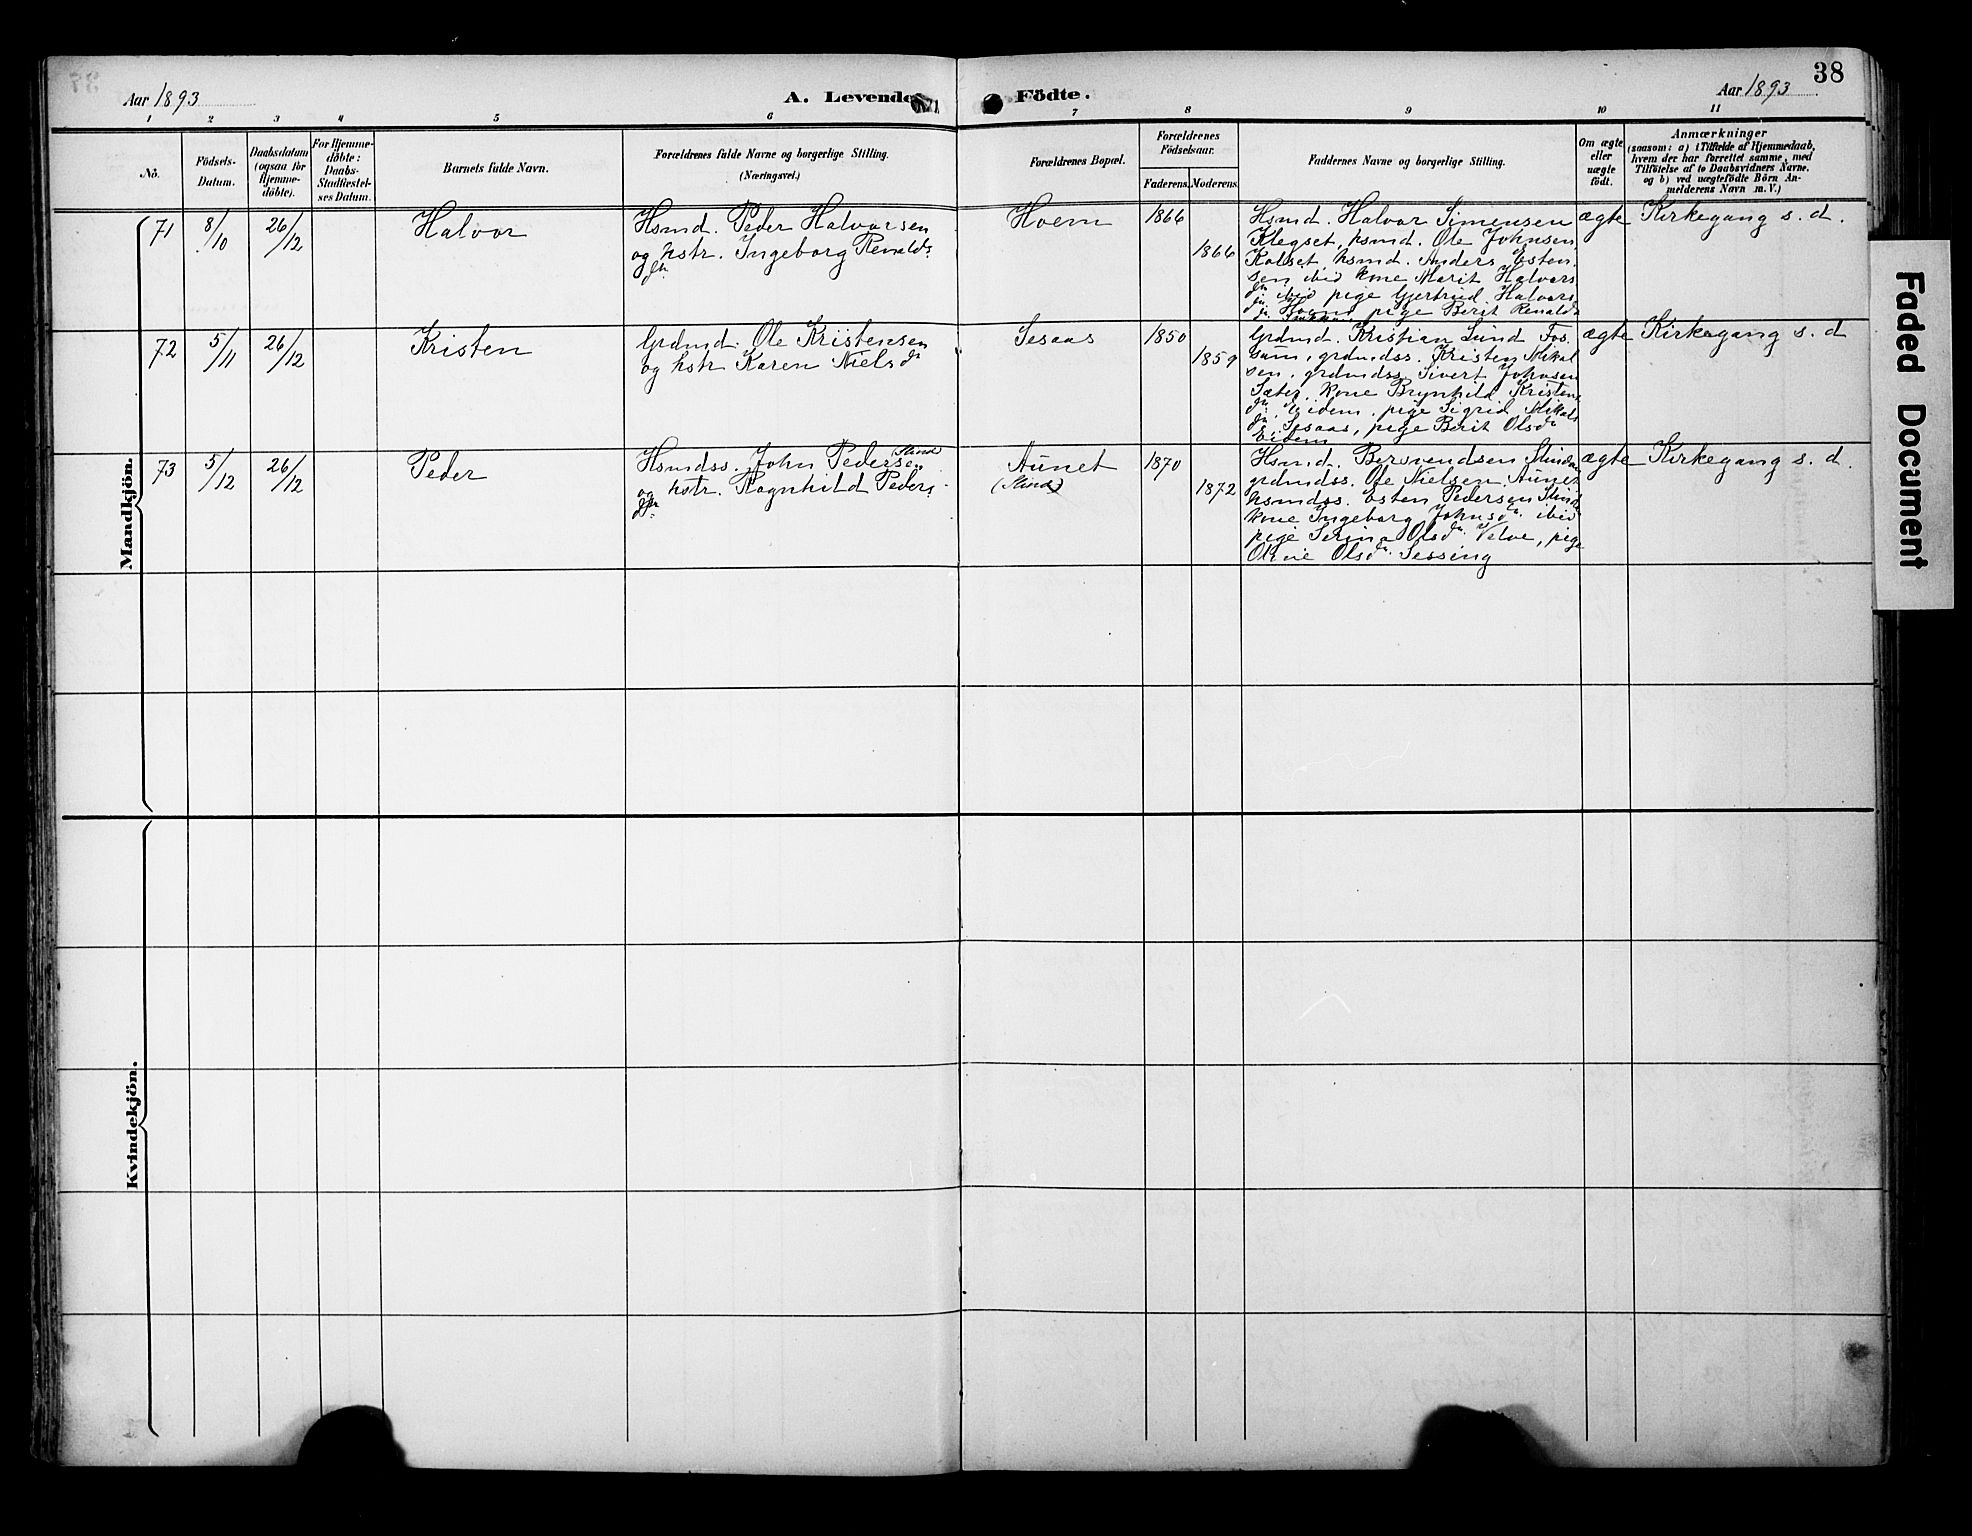 38
Aar 1893
A. Levende Födte.
Aar 1893
1 2 3 4 5 6 7 8 9 10 11
No.
Födsels-
Datum.
Daabsdatum
(ogsaa for
Hjemme-
döbte).
For Hjemme-
döbte:
Daabs-
Stadfæstel-
ses Datum.
Barnets fulde Navn.
Forældrenes fulde Navne og borgerlige Stilling.
(Næringsvei.)
Forældrenes Bopæl.
Forældrenes
Födselsaar.
Faderens. Moderens.
Faddernes Navne og borgerlige Stilling.
Om ægte
eller
uægte
födt.
Anmærkninger
(saasom: a) i Tilfælde af Hjemmedaab,
hvem der har forrettet samme, med
Tilföielse af to Daabsvidners Navne,
og b) ved uægtefödte Börn An-
melderens Navn m. V.)
Mandkjön.
71
8/10
26/12
Halvor
Hsmd. Peder Halvorsen
og hstr. Ingeborg Renalds
dtr
Hoem
1866
1866
Hsmd. Halvor Simensen
Klegset, hsmd. Ole Johnsen
Kalset hsmd. Anders Esten
sen ibid kone Marit Halvors
dtr ibid pige Gjertrud Halvors
pige Berit Renalds
ægte
Kirkegang s. d.
72
5/11
26/12
Kristen
Grdmd. Ole Kristensen
og hstr Karen Nielsdtr
Sesaas
1850
1859
Grdmd. Kristian Lund Fos
sum, grdmdss. Kristen Mikal
sen, grdmdss Sivert Johnsen
Sæter, kone Brynhild Kristens
dtr Eidem, pige Sigrid Mikals
dtr Sesaas, pige Berit Olsdtr
Eidem
ægte
Kirkegang s. d
73
5/12
26/12
Peder
Hsmdss. John Pedersen
og hstr. Ragnhild Peders
dtr.
Aunet
1870
1872
Hsmd. Bersvendsen
grdmdss. Ole Nielsen Aunet
hsmdss. Esten Pedersen
kone Ingeborg Johnsdtr ibid
pige Serina Olsdtr Velve, pige
Oline Olsdtr Sessing
ægte
Kirkegang s. d.
Kvindekjön.
Faded Document